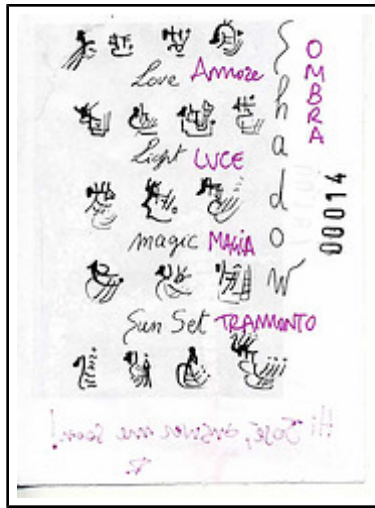 Love Amore
Light LUCE
magic MAGIA
Sun Set TRAMONTO
Shadow
OMBRA
00014
Hi José, answer me soon!